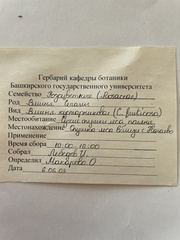 Гербарий кафедры ботаники
Башкирского государственного университета
Семейство Rosaceae (Rosaceae)
Род Вишня Cerasus
Вид Вишня кустарниковая (C. fruticosa)
Местообитание опушки леса, поляна
Местонахождение Опушка леса вблизи с.
Применение
Время сбора 10.00-12.00
Собрал Лебедев И.
Определил Макарова О
Дата 6.05.03